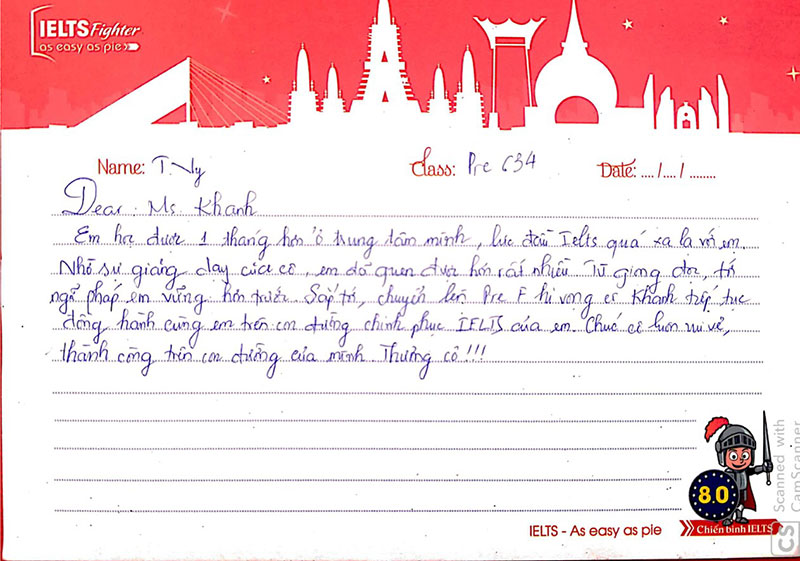 IELTS Fighter
as easy as pie
Name: T. Vy Class: Pre 634 Date: ..../..../........
Dear Ms Khanh
Em học được 1 tháng hơn ở trung tâm mình, lúc đầu Ielts quá xa lạ với em.
Nhờ sự giảng dạy của cô, em đã quen được hơn rất nhiều. Từ giọng đọc, tới
ngữ pháp em vững hơn trước. Sắp tới, chuyển lên Pre F hi vọng cô Khanh tiếp tục
đồng hành cùng em trên con đường chinh phục IELTS của em. Chúc cô luôn vui vẻ,
thành công trên con đường của mình. Thương cô!!!
8.0
IELTS - As easy as pie Chiến binh IELTS
CS Scanned with CamScanner